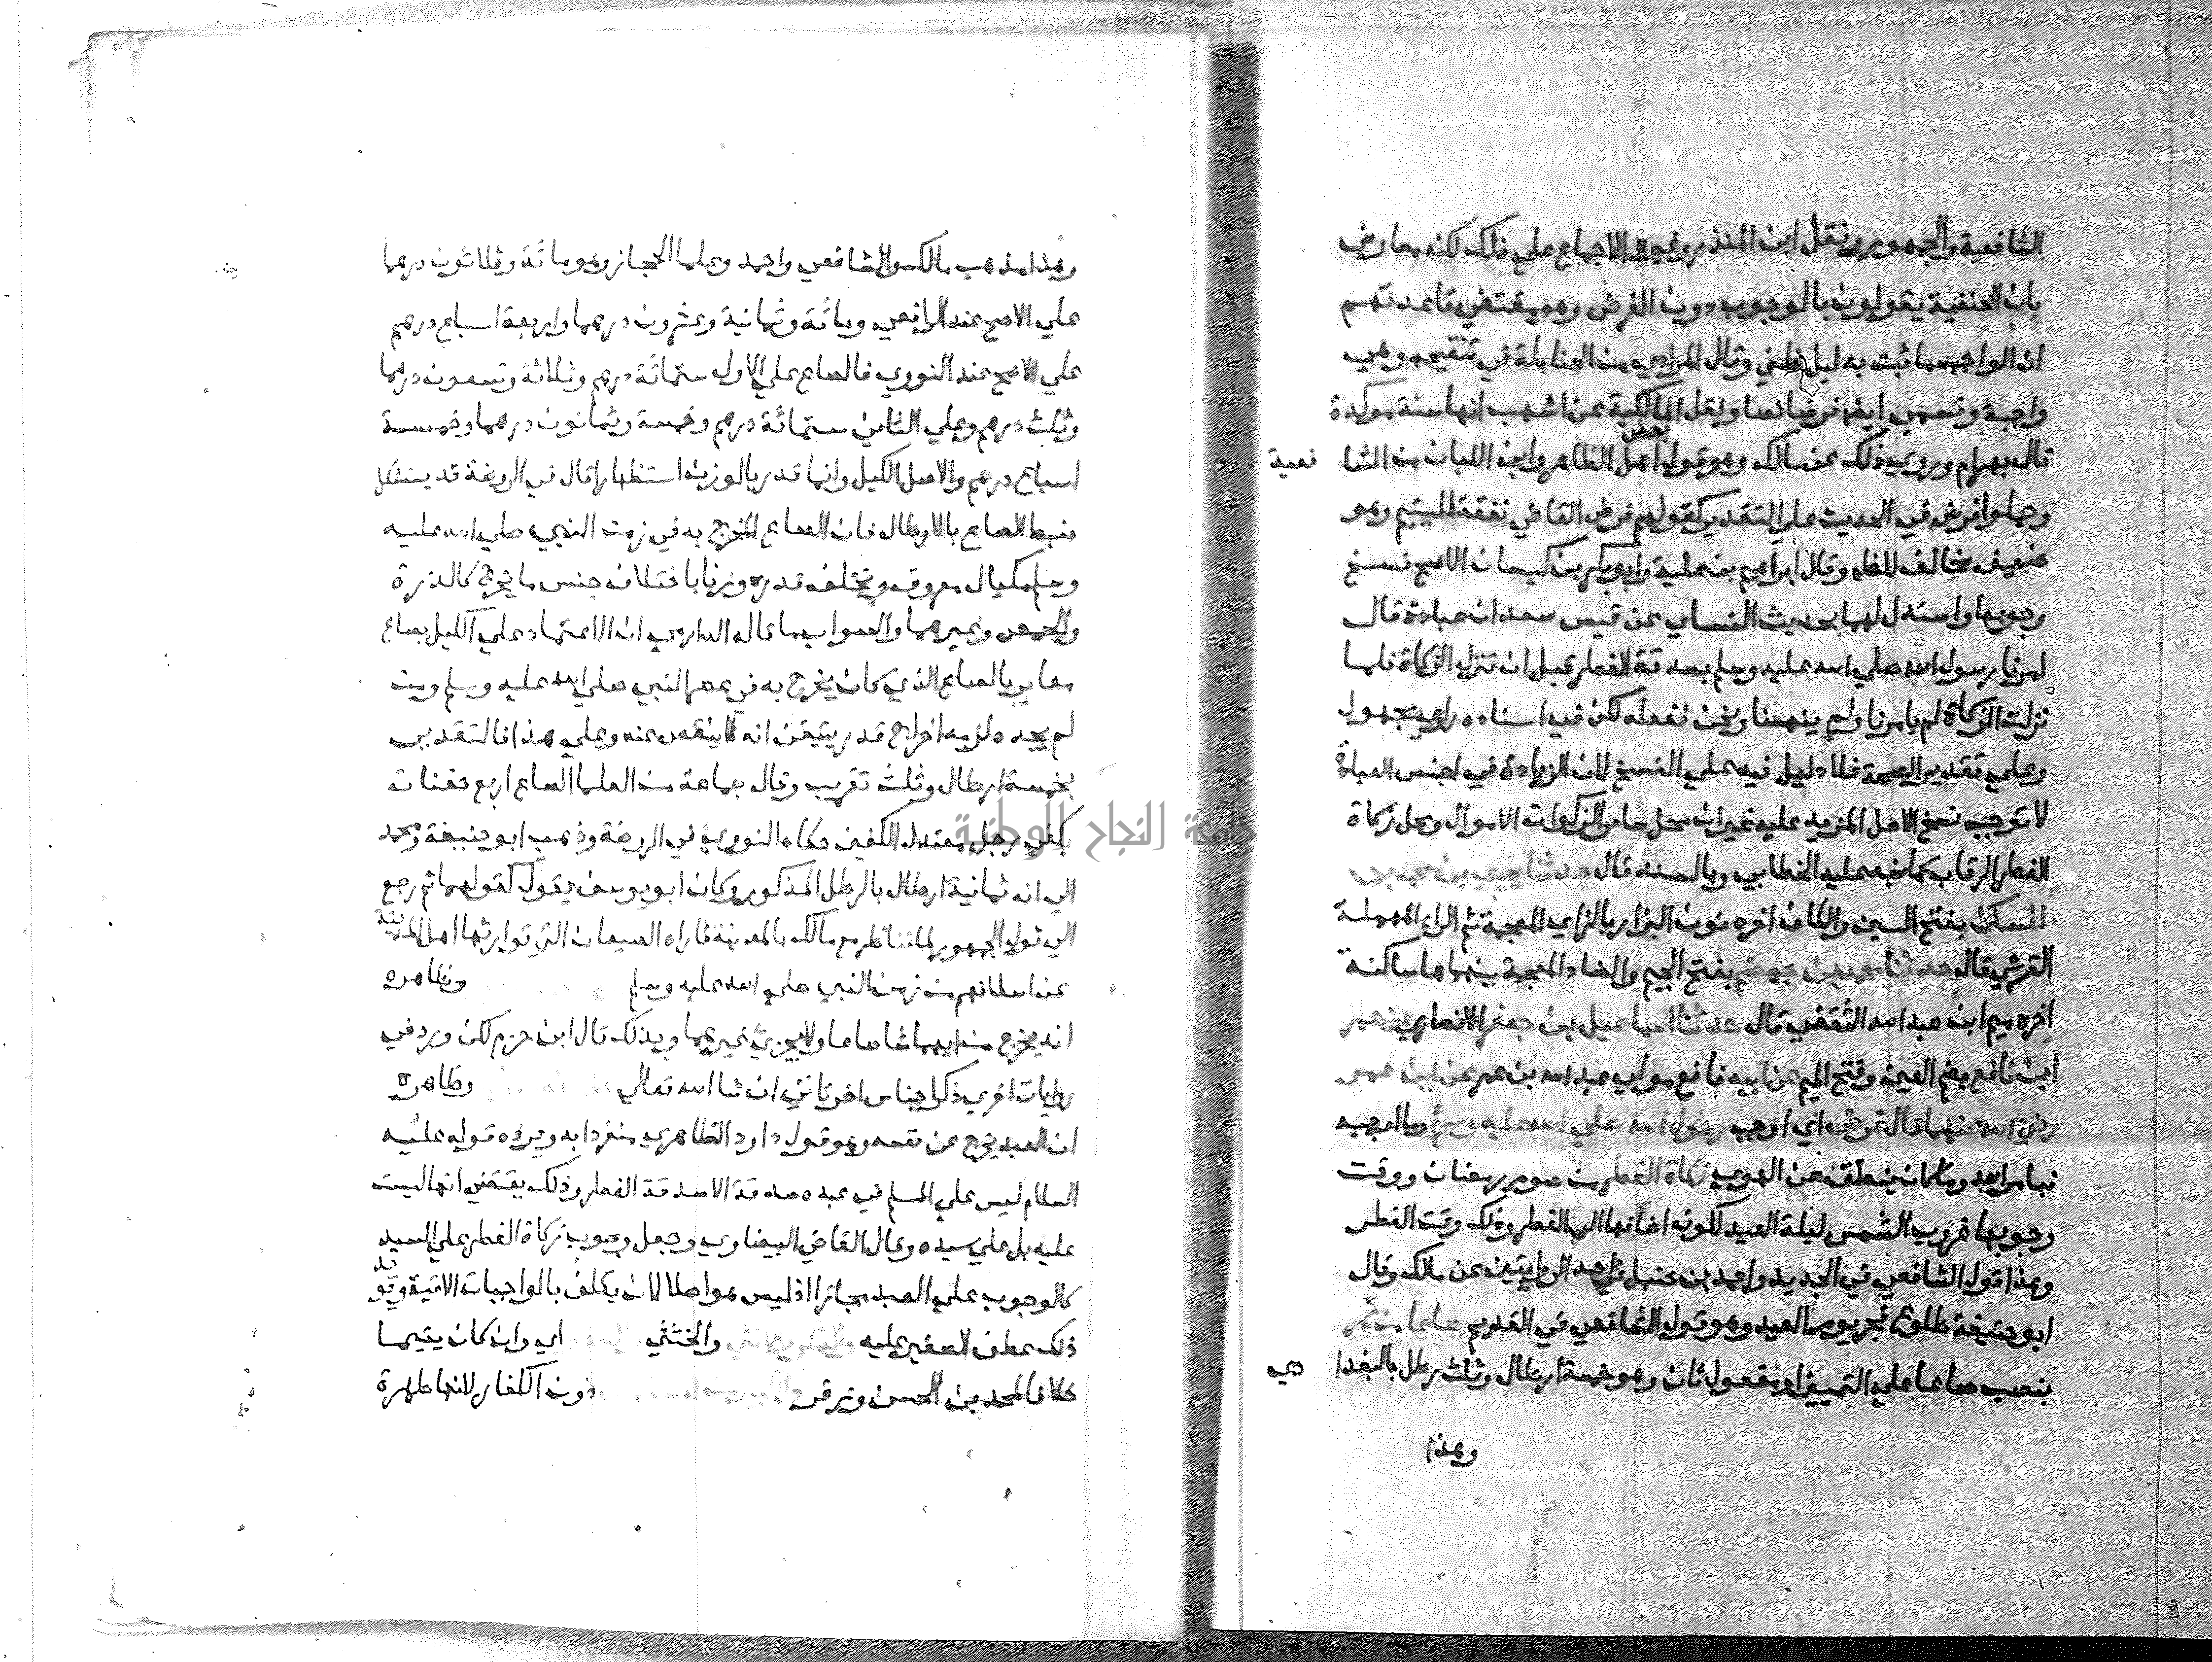 الشافعية والجمهور ونقل ابن المنذر وغيره الاجماع علي ذلك لكنه معارض
بان الحنفية يقولون بالوجوب دون الفرض وهو مقتضي قاعدتهم
ان الواجب ما ثبت بدليل ظني وقال المرداوي من الحنابلة في تنقيحه وهي
واجبة وتسمي ايضا فرضا نصا ونقل المالكية عن اشهب انها سنة موكدة
قال بهرام وروي ذلك عن مالك وهو قول بعض اهل الظاهر وابن اللبان من الشا فعية
وحملوا فرض في الحديث علي التقدير كقولهم فرض القاضي نفقة اليتيم وهو
ضعيف مخالف للظاهر وقال ابراهيم بن علية وابو بكر بن كيسان الاصم نسخ
وجوبها واستدل لهما بحديث النساي عن قيس سعد ابن عبادة قال
امرنا رسول الله صلي الله عليه وسلم بصدقة الفطر قبل ان تنزل الزكاة فلما
نزلت الزكاة لم يامرنا ولم ينهنا ونحن نفعله لكن في اسناده راو مجهول
وعلي تقدير الصحة فلا دليل فيه علي النسخ لان الزيادة في جنس العبادة
لا توجب نسخ الاصل المزيد عليه غير ان محل ساير الزكوات الاموال ومحل زكاة
الفطر الرقاب كما نبه عليه الخطابي وبالسند قال حدثنا يحيي بن محمد بن
السكن بفتح السين والكاف اخره نون البزار بالزاي المعجمة ثم الراء المهملة
القرشي قال حدثنا محمد بن جهضم بفتح الجيم والضاد المعجمة بينهما ها ساكنة
اخره ميم ابن عبد الله الثقفي قال حدثنا اسماعيل بن جعفر الانصاري عن عمر
ابن نافع بضم العين وفتح الميم عن ابيه نافع مولي عبد الله بن عمر عن ابن عمر
رضي الله عنهما قال فرض اي اوجب رسول الله صلي الله عليه وسلم وما اوجبه
فبامر الله وما كان ينطق عن الهوي زكاة الفطر من صوم رمضان ووقت
وجوبها غروب الشمس ليلة العيد لكونه اضافها الي الفطر وذلك وقت الفطر
وهذا قول الشافعي في الجديد واحمد بن حنبل واحد الروايتين عن مالك وقال
ابو حنيفة طلوع فجر يوم العيد وهو قول الشافعي في القديم صاعا من تمر
بنصب صاعا علي التمييز او مفعول ثان وهو خمسة ارطال وثلث رطل بالبغدا دي
وهذا
وهذا مذهب مالك والشافعي واحمد وعلما الحجاز وهو مائة وثلاثون درهما
علي الاصح عند الرافعي ومائة وثمانية وعشرون درهما واربعة اسباع درهم
علي الاصح عند النووي فالصاع علي الاول ستمائة درهم وثلاثة وتسعون درهما
وثلث درهم وعلي الثاني ستمائة درهم وخمسة وثمانون درهما وخمسة
اسباع درهم والاصل الكيل وانما قدر بالوزن استظهارا قال في الروضة قد يستشكل
ضبط الصاع بالارطال فان الصاع المخرج به في زمن النبي صلي الله عليه
وسلم مكيال معروف ويختلف قدره وزنا باختلاف جنس ما يخرج كالذرة
والحمص وغيرهما والصواب ما قاله الدارمي ان الاعتماد علي الكيل بصاع
معاير بالصاع الذي كان يخرج به في عصر النبي صلي الله عليه وسلم ومن
لم يجده لزمه اخراج قدر يتيقن انه لا ينقص عنه وعلي هذا فالتقدير
بخمسة ارطال وثلث تقريب وقال جماعة من العلما الصاع اربع حفنات
بكفي رجل معتدل الكفين حكاه النووي في الروضة وذهب ابو حنيفة ومحمد
الي انه ثمانية ارطال بالرطل المذكور وكان ابو يوسف يقول كقولهما ثم رجع
الي قول الجمهور لما تناظر مع مالك بالمدينة فاراه الصيعان التي توارثها اهل المدينة
عن اسلافهم من زمن النبي صلي الله عليه وسلم وظاهره
انه يخرج من ايهما شا صاعا ولا يجزي غيرهما وبذلك قال ابن حزم لكن ورد في
روايات اخري ذكر اجناس اخر ياتي ان شا الله تعالي وظاهره
ان العبد يخرج عن نفسه وهو قول داود الظاهري منفردا به ويرده قوله عليه
السلام ليس علي المسلم في عبده صدقة الا صدقة الفطر وذلك يقتضي انها ليست
عليه بل علي سيده وقال القاضي البيضاوي وجعل وجوب زكاة الفطر علي السيد
كالوجوب علي العبد مجازا اذ ليس هو اهلا لان يكلف بالواجبات الماليه ويويد
ذلك عطف الصغير عليه والخنثي اي وان كان يتيما
خلافا لمحمد بن الحسن وزفر دون الكفار لانها طهرة
جامعة النجاح الوطنية